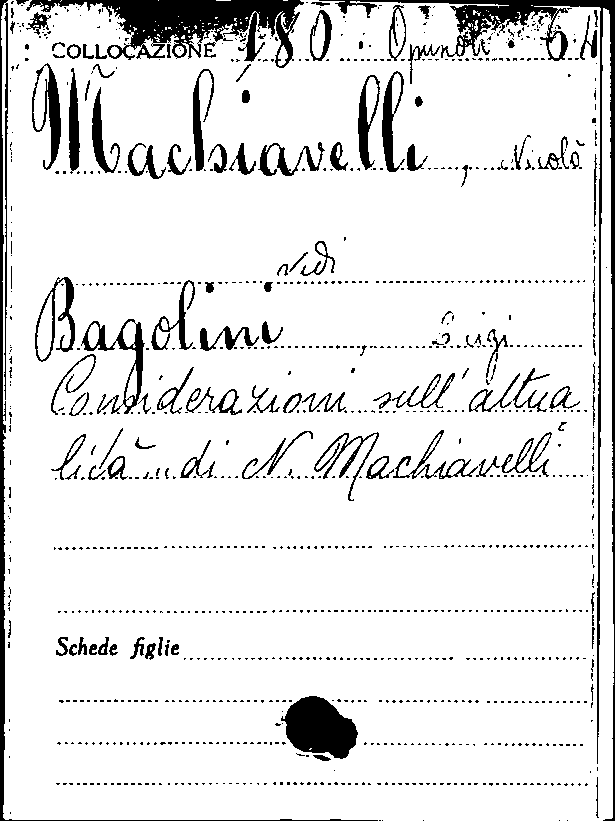 COLLOCAZIONE 180. Opuscoli. 64
Machiavelli, Nicolò
vedi
Bagolini, Luigi
Considerazioni sull'attua
lità „di N. Machiavelli"
Schede figlie